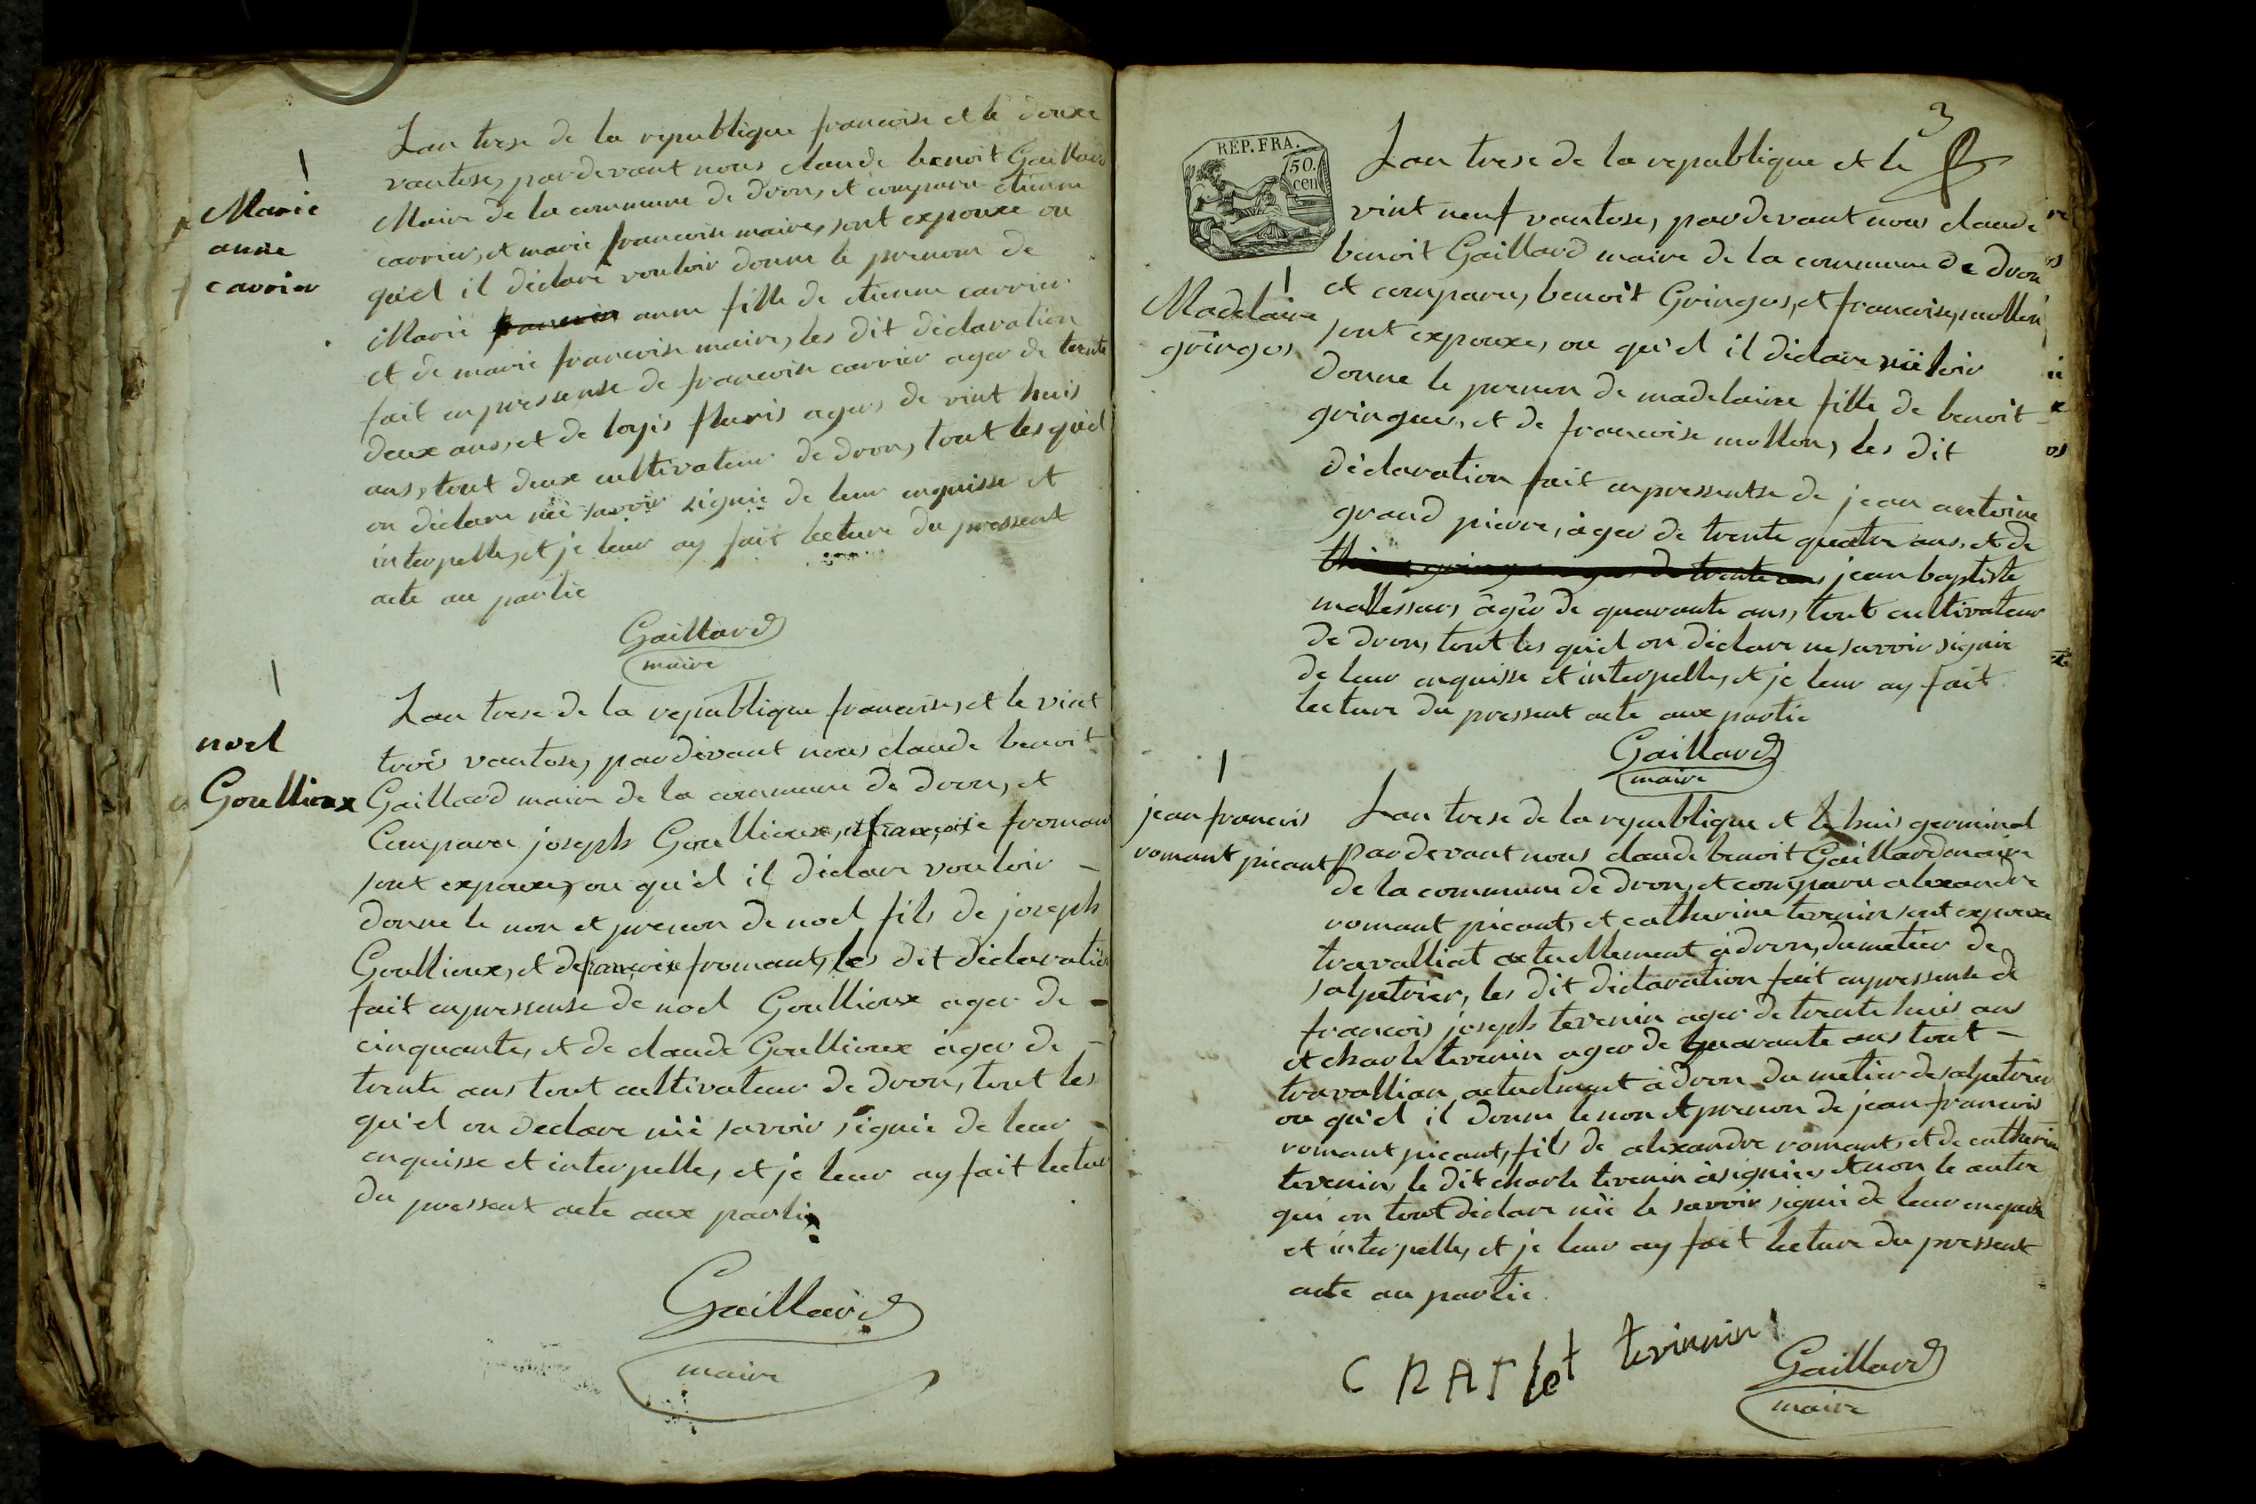 Marie
anne
carrier
Lan trese de la republique francoise et le douxe
vantose, pardevant nous claude benoit Gaillard
Maire de la commune de dron, et comparu etienne
carrier, et marie francoise maire, sont expouxe ou
qu'el il déclare vouloir donne le prenom de
Marie anne fille de etienne carrier
et de marie francoise maire, les dit déclaration
fait enpressense de francoise carrier ager de trente
deux ans, et de loyis fleuris ager de vint huis
ans, tout deux cultivateur de dron, tout les quel
on déclare nii savoir signié de leur enquisse et
interpelle, et je leur ay fait lecture du pressent
acte au partié
Gaillard
maire
noel
Goullioux
Lan trese de la republique francoise, et le vint
trois vantose, pardevant nous claude benoit
Gaillard maire de la commune de dron, et
Comparu joseph Goullioux, et françoise fromant
sont expouxe, ou qu'el il déclare vouloir
donne le non et prenon de noel fils de joseph
Goullioux, et de françoise fromant, les dit déclaration
fait enpressense de noel Goullioux ager de
cinquante, et de claude Goullioux àger de
trente ans tout cultivateur de dron, tout les
qu'el on declare nii savoir signié de leur
enquisse et interpelle, et je leur ay fait lecture
du pressent acte aux partie
Gaillard
maire
3
REP. FRA.
50.
cen
Madelaine
gringos
Lan trese de la republique et le
vint neuf vantose, pardevant nous claude
benoit Gaillard maire de la commune de dron
et comparu, benoit Gringos, et francoise, mollon
sont expouxe, ou qu'el il déclare
donne le prenon de madelaine fille de benoit
gringos, et de francoise mollon, les dit
déclaration fait enpressentse de jean antoine
grand pierre, àger de trente quatre ans, et de
jean baptiste
mallessars àgér de quarante ans, tout cultivateur
de dron, tout les qu'el on déclare ne savoir signie
de leur enquisse et interpelle, et je leur ay fait
lecture du pressent acte aux partie
Gaillard
maire
jean francois
romant picant
Lan trese de la republique et le huis germinal
pardevant nous claude benoit Gaillard maire
de la commune de dron, et comparu alexandre
romant picant, et catherine tevenin sont expouxe
travalliat actuellement à dron, du metier de
salpetrier, les dit déclaration fait enpressense de
francois joseph tevenin ager de trente huis ans
et charle tevenin ager de quarante ans tout
travallian actuelment à dron du metier de salpetrier
ou qu'el il donne le non et prenon de jean francois
romant picant, fils de alexandre romant, et de catherine
tevenin, le dit charle tevenin à signie, et non le autre
qui on tout déclare nïe le savoir signi de leur enquisse
et interpelle, et je leur ay fait lecture du pressent
acte au partié
tevinnin
Gaillard
maire